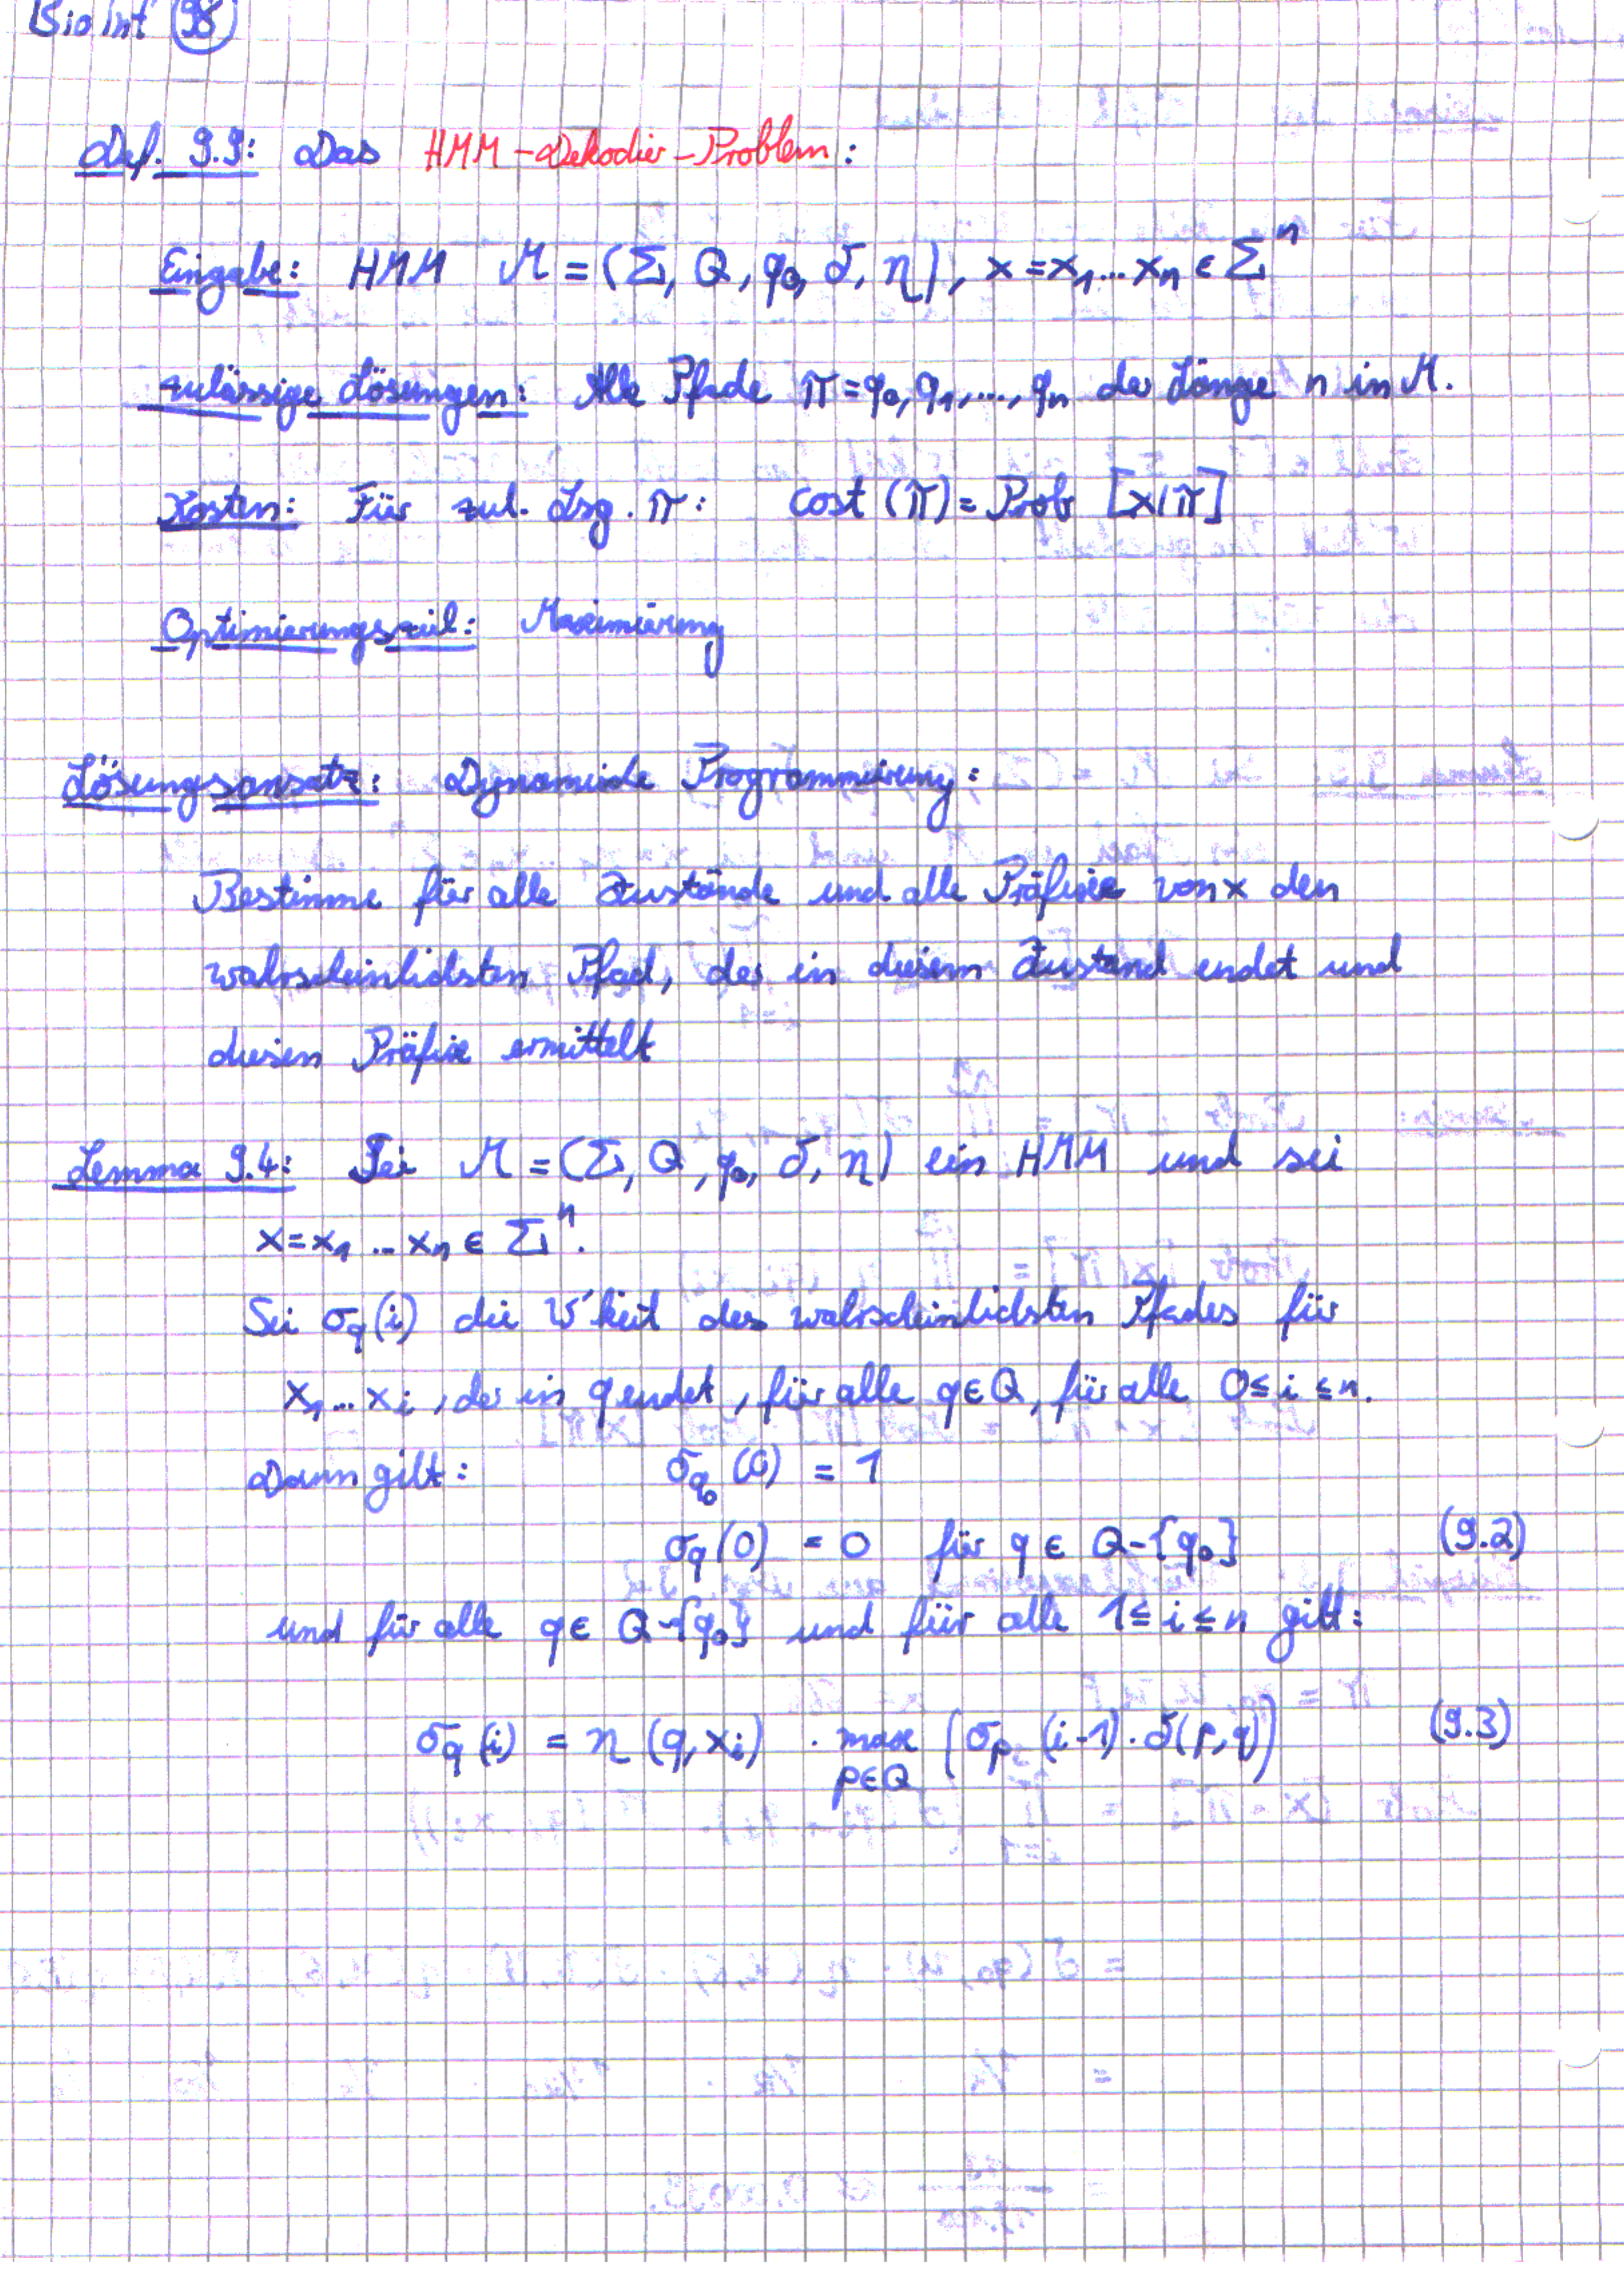 Bioinf 98
Def. 9.9: Das HMM-Dekodier-Problem:
Eingabe: HMM M = (Σ, Q, q₀, δ, η), x = x₁...xₙ ∈ Σⁿ
zulässige Lösungen: Alle Pfade π = q₀, q₁, ..., qₙ der Länge n in M.
Kosten: Für zul. Lsg. π: cost (π) = Prob [x|π]
Optimierungsziel: Maximierung
Lösungsansatz: Dynamische Programmierung:
Bestimme für alle Zustände und alle Präfixe von x den
wahrscheinlichsten Pfad, der in diesem Zustand endet und
diesen Präfix ermittelt
Lemma 9.4: Sei M = (Σ, Q, q₀, δ, η) ein HMM und sei
x = x₁ ... xₙ ∈ Σⁿ.
Sei σ_q(i) die W'keit des wahrscheinlichsten Pfades für
x₁...xᵢ, der in q endet, für alle q ∈ Q, für alle 0 ≤ i ≤ n.
Dann gilt: σ_q₀ (0) = 1
σ_q (0) = 0 für q ∈ Q-{q₀} (9.2)
und für alle q ∈ Q-{q₀} und für alle 1 ≤ i ≤ n gilt:
σ_q (i) = η (q, xᵢ) · max_{p∈Q} (σ_p (i-1) · δ(p,q)) (9.3)